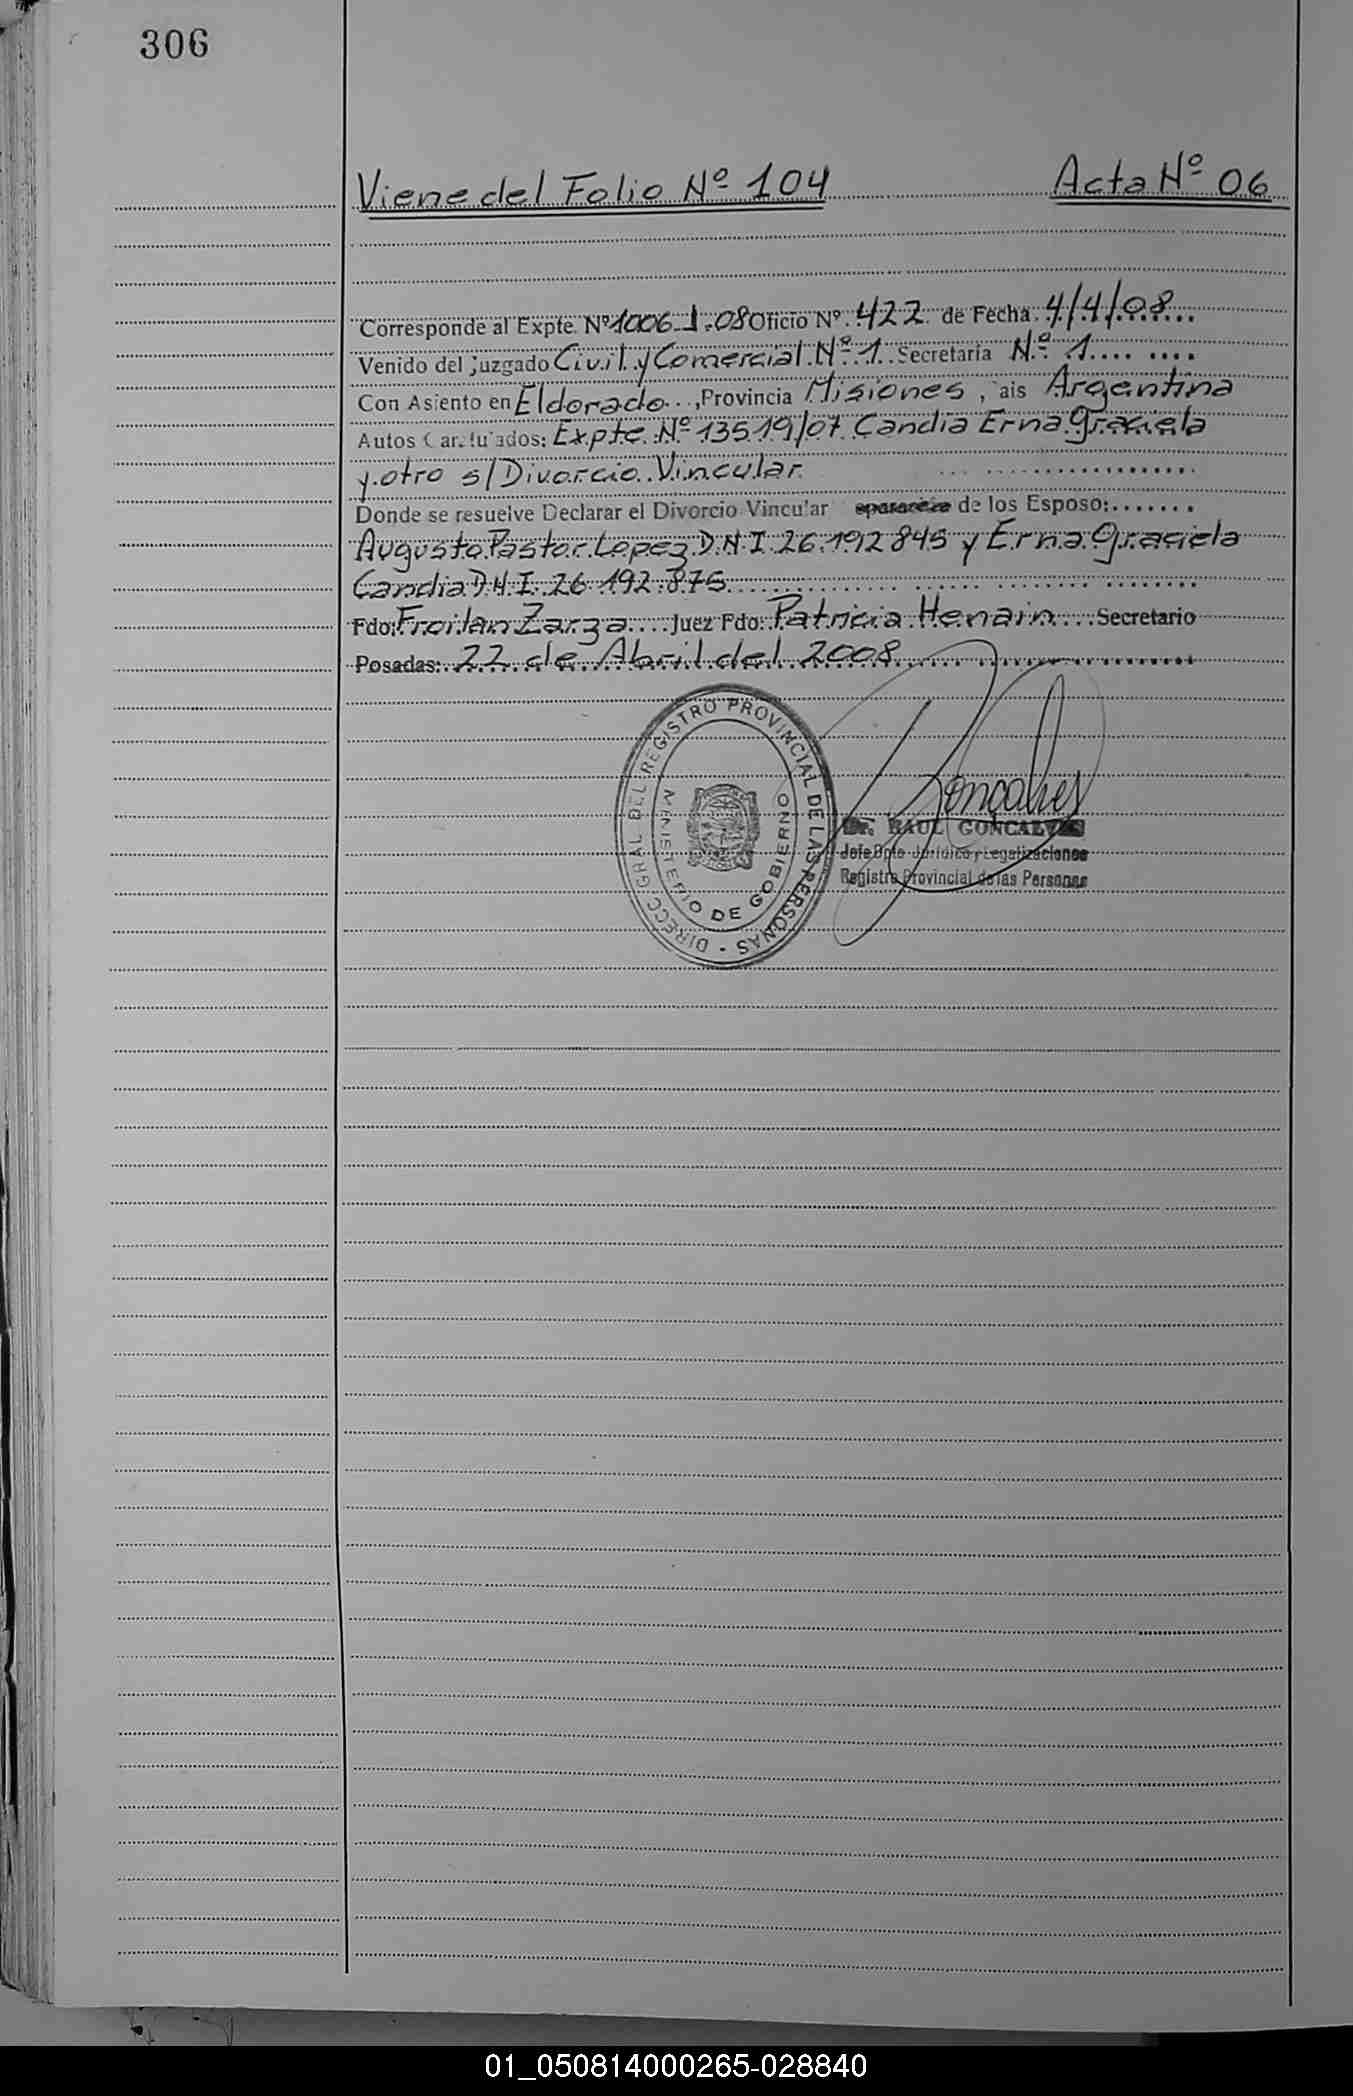 306
Viene del Folio Nº 104 Acta Nº 06
Corresponde al Expte. Nº 1006-J-08 Oficio Nº 422 de Fecha 4/4/08
Venido del Juzgado Civil y Comercial Nº 1 Secretaria Nº 1
Con Asiento en Eldorado, Provincia Misiones, ais Argentina
Autos Caratulados: Expte. Nº 13519/07 Candia Erna Graciela
y otro s/ Divorcio Vincular
Donde se resuelve Declarar el Divorcio Vincular de los Esposo:
Augusto Pastor Lopez D.N.I. 26.192.845 y Erna Graciela
Candia D.N.I. 26.192.875
Fdo: Froilan Zarza Juez Fdo: Patricia Henain Secretario
Posadas: 22 de Abril del 2008
DIRECC GRAL DEL REGISTRO PROVINCIAL DE LAS PERSONAS -
MINISTERIO DE GOBIERNO
Goncalves
Dr. RAUL GONCALVES
Jefe Dpto Jurídico y Legalizaciones
Registro Provincial de las Personas
01_050814000265-028840